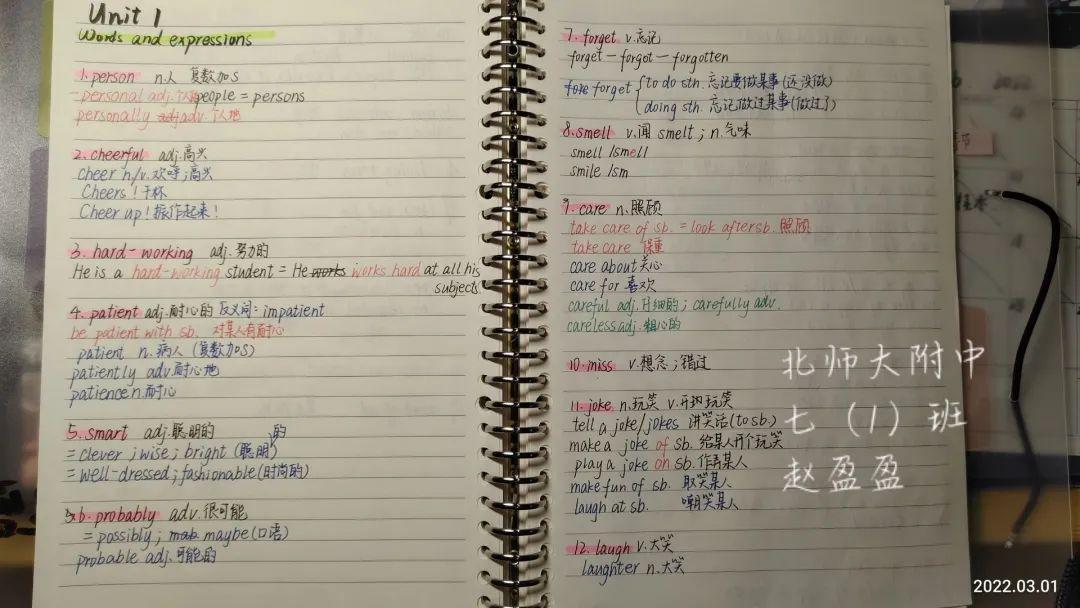 Unit 1
Words and expressions
1. person n.人 复数加S
personal adj.个人的 people = persons
personally adv.个人地
2. cheerful adj.高兴
cheer n/v.欢呼;高兴
Cheers!干杯
Cheer up!振作起来!
3. hard-working adj.努力的
He is a hard-working student = He works works hard at all his
subjects
4. patient adj.耐心的 反义词: impatient
be patient with sb. 对某人有耐心
patient n.病人 (复数加S)
patiently adv.耐心地
patience n.耐心
5. smart adj.聪明的
= clever ; wise ; bright (聪明的)
= well-dressed ; fashionable (时尚的)
6. probably adv.很可能
= possibly ; maybe (口语)
probable adj.可能的
7. forget v.忘记
forget - forgot - forgotten
forget to do sth. 忘记要做某事(还没做)
doing sth. 忘记做过某事(做过了)
8. smell v.闻 smelt ; n.气味
smell /smell
smile /sm
9. care n.照顾
take care of sb. = look after sb. 照顾
take care 保重
care about 关心
care for 喜欢
careful adj.仔细的 ; carefully adv.
careless adj.粗心的
10. miss v.想念 ; 错过
11. joke n.玩笑 v.开玩笑
tell a joke/jokes 讲笑话(to sb.)
make a joke of sb. 给某人开个玩笑
play a joke on sb. 作弄某人
make fun of sb. 取笑某人
laugh at sb. 嘲笑某人
12. laugh v.大笑
laughter n.大笑
北师大附中
七（1）班
赵盈盈
2022.03.01